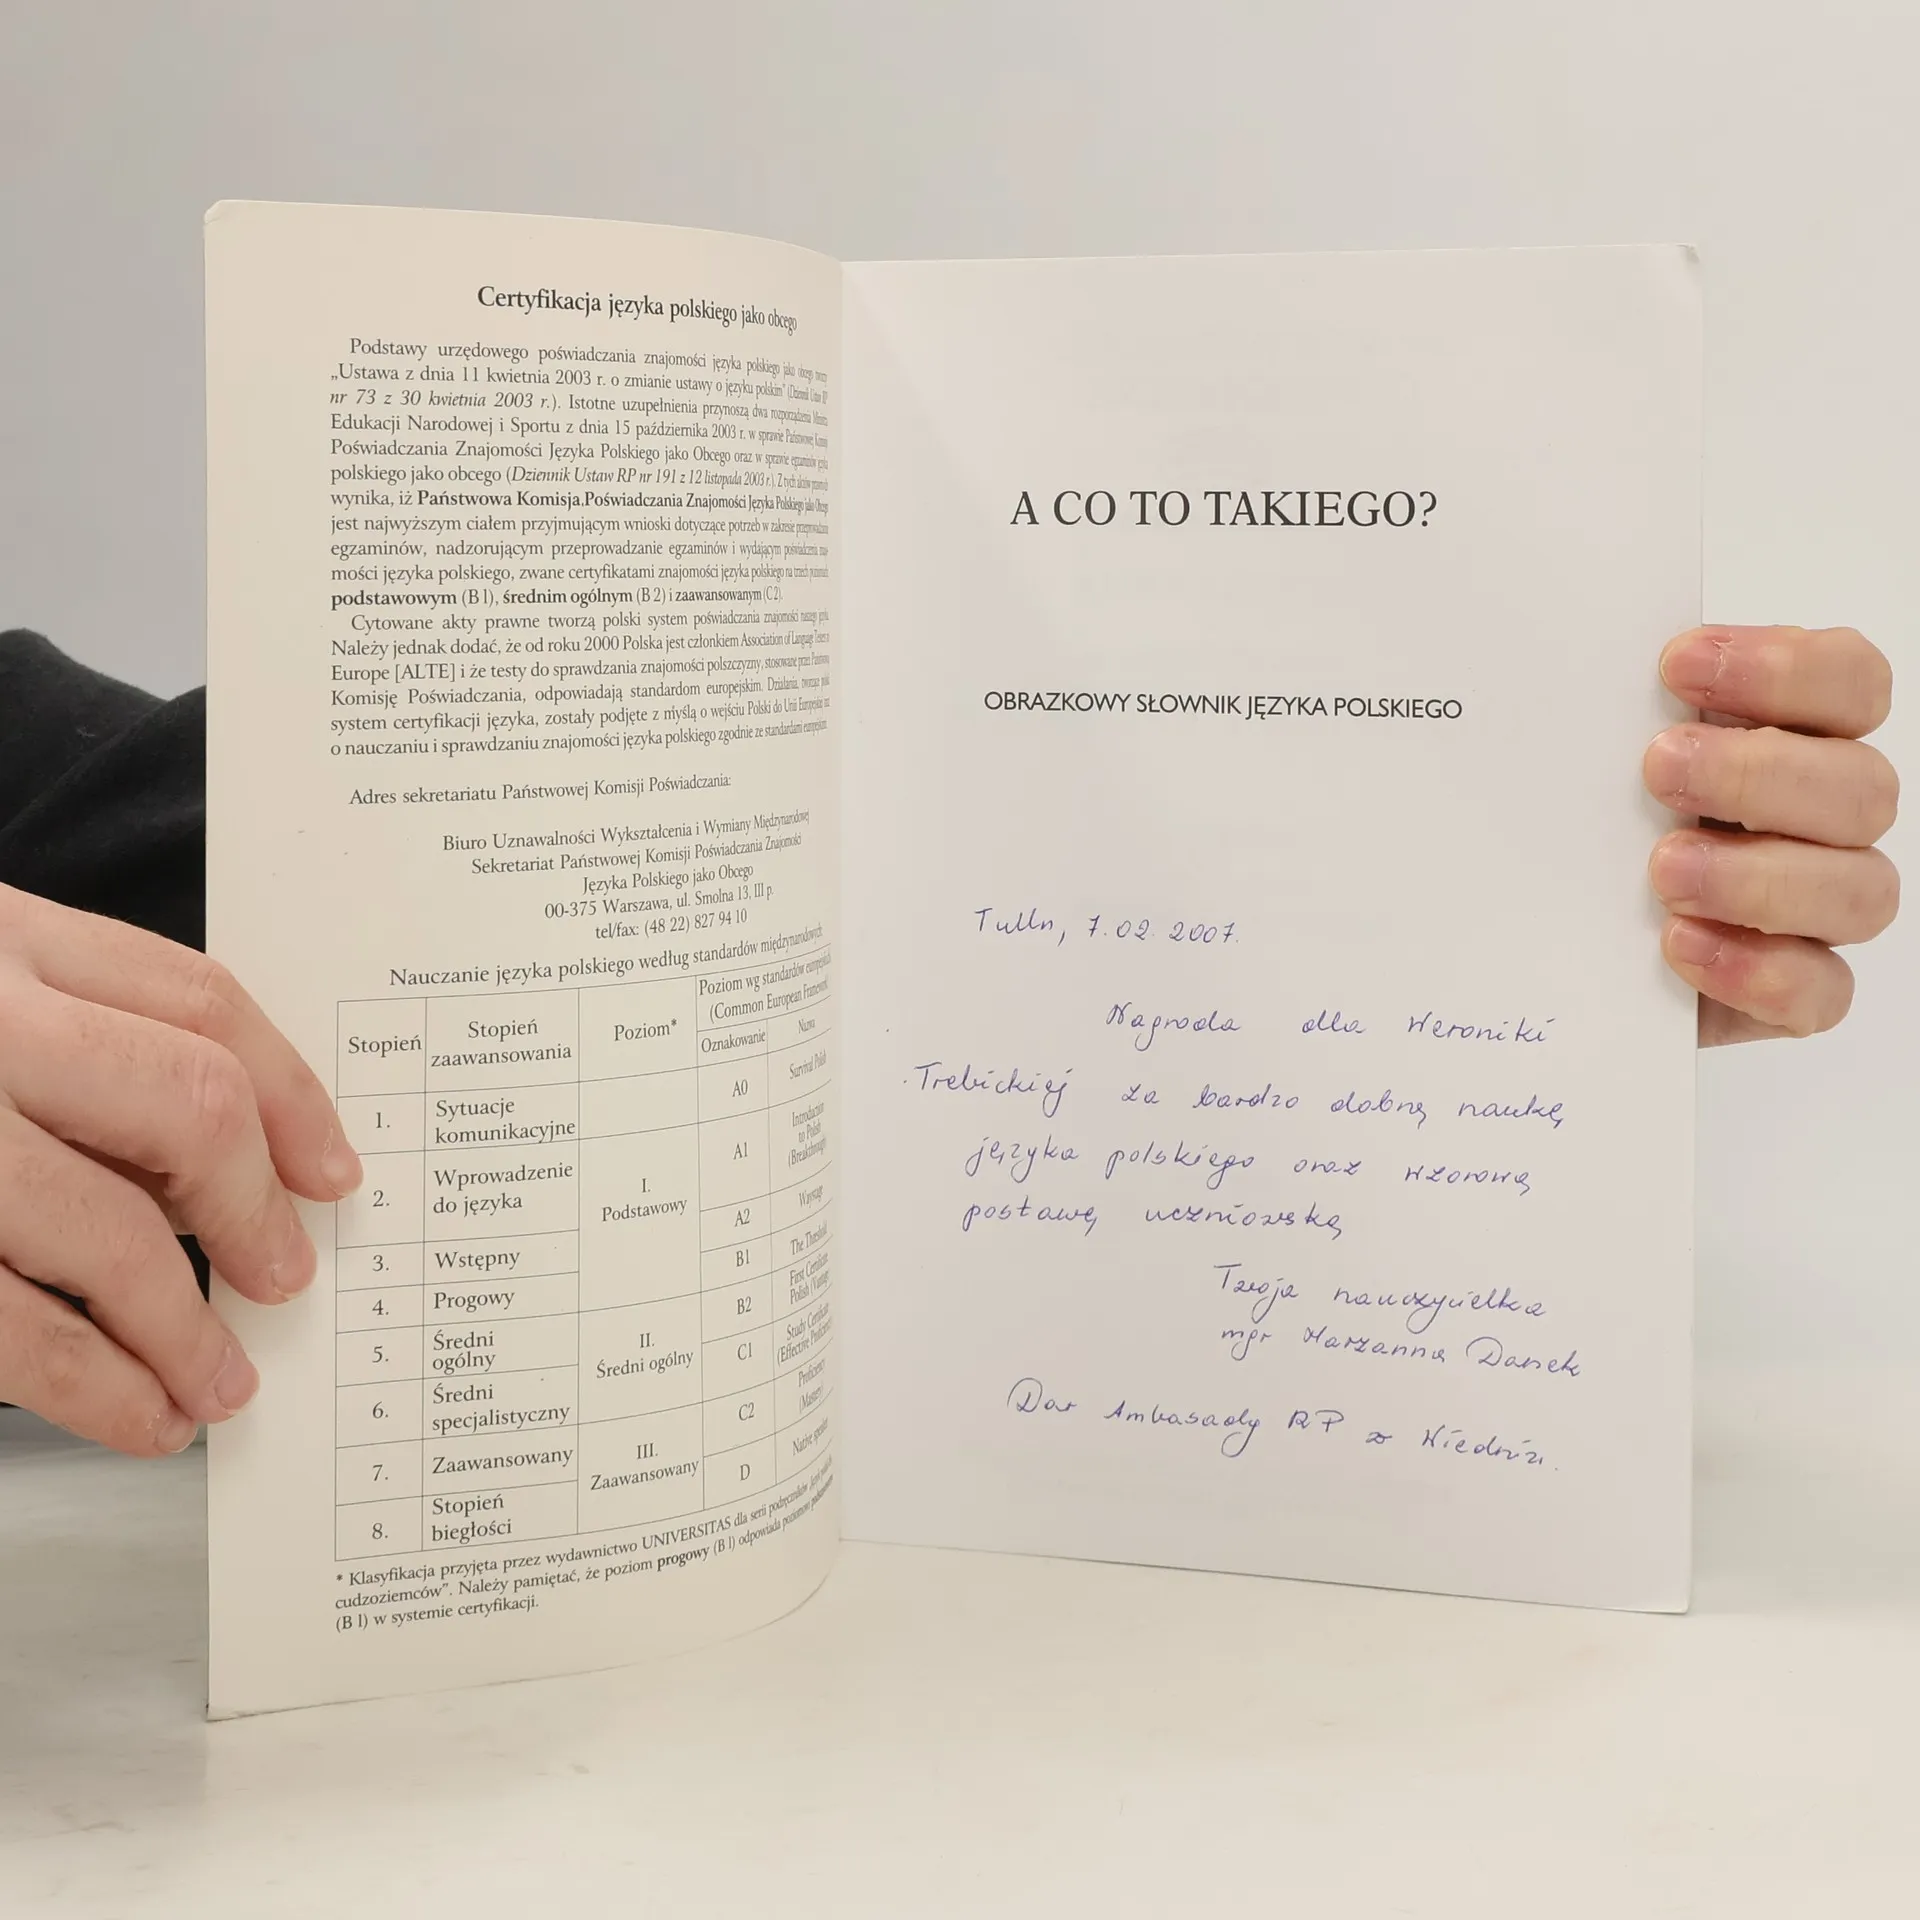 Certyfikacja języka polskiego jako obcego
Podstawy urzędowego poświadczania znajomości języka polskiego jako obcego tworzy
„Ustawa z dnia 11 kwietnia 2003 r. o zmianie ustawy o języku polskim" (Dziennik Ustaw RP
nr 73 z 30 kwietnia 2003 r.). Istotne uzupełnienia przynoszą dwa rozporządzenia Ministra
Edukacji Narodowej i Sportu z dnia 15 października 2003 r. w sprawie Państwowej Komisji
Poświadczania Znajomości Języka Polskiego jako Obcego oraz w sprawie egzaminów języka
polskiego jako obcego (Dziennik Ustaw RP nr 191 z 12 listopada 2003 r.). Z tych aktów prawnych
wynika, iż Państwowa Komisja Poświadczania Znajomości Języka Polskiego jako Obcego
jest najwyższym ciałem przyjmującym wnioski dotyczące potrzeb w zakresie przeprowadzania
egzaminów, nadzorującym przeprowadzanie egzaminów i wydającym poświadczenia znajo-
mości języka polskiego, zwane certyfikatami znajomości języka polskiego na trzech poziomach:
podstawowym (B1), średnim ogólnym (B2) i zaawansowanym (C2).
Cytowane akty prawne tworzą polski system poświadczania znajomości naszego języka.
Należy jednak dodać, że od roku 2000 Polska jest członkiem Association of Language Testers in
Europe [ALTE] i że testy do sprawdzania znajomości polszczyzny, stosowane przez Państwową
Komisję Poświadczania, odpowiadają standardom europejskim. Działania, tworzące polski
system certyfikacji języka, zostały podjęte z myślą o wejściu Polski do Unii Europejskiej oraz
o nauczaniu i sprawdzaniu znajomości języka polskiego zgodnie ze standardami europejskimi.
Adres sekretariatu Państwowej Komisji Poświadczania:
Biuro Uznawalności Wykształcenia i Wymiany Międzynarodowej
Sekretariat Państwowej Komisji Poświadczania Znajomości
Języka Polskiego jako Obcego
00-375 Warszawa, ul. Smolna 13, III p.
tel/fax: (48 22) 827 94 10
Nauczanie języka polskiego według standardów międzynarodowych
Stopień Stopień zaawansowania Poziom* Poziom wg standardów europejskich (Common European Framework)
Oznakowanie Nazwa
1. Sytuacje komunikacyjne A0 Survival Polish
2. Wprowadzenie do języka I. Podstawowy A1 Introduction to Polish (Breakthrough)
3. Wstępny A2 Waystage
4. Progowy B1 The Threshold
5. Średni ogólny II. Średni ogólny B2 First Certificate Polish (Vantage)
6. Średni specjalistyczny C1 Study Certificate (Effective Proficiency)
7. Zaawansowany III. Zaawansowany C2 Proficiency (Mastery)
8. Stopień biegłości D Native speaker
* Klasyfikacja przyjęta przez wydawnictwo UNIVERSITAS dla serii podręczników „Język polski dla
cudzoziemców". Należy pamiętać, że poziom progowy (B1) odpowiada poziomowi podstawowemu
(B1) w systemie certyfikacji.
A CO TO TAKIEGO?
OBRAZKOWY SŁOWNIK JĘZYKA POLSKIEGO
Tulln, 7.02.2007.
Nagroda dla Weroniki
Trebickiej za bardzo dobrą naukę
języka polskiego oraz wzorową
postawę uczniowską
Twoja nauczycielka
mgr Marzanna Danek
Dar Ambasady RP w Wiedniu.